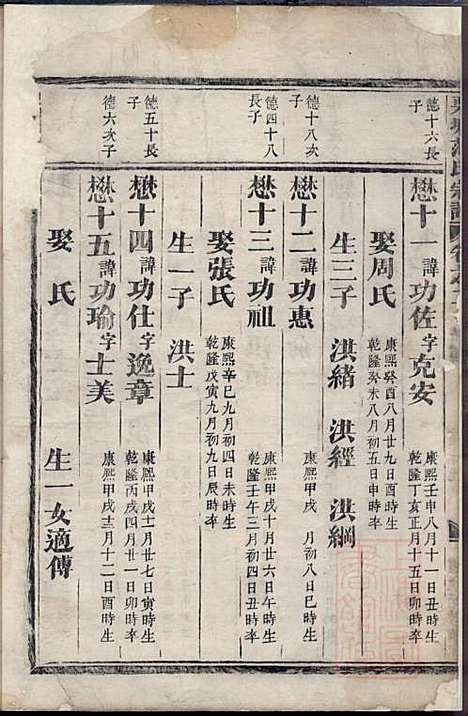 德十六長子
懋十一諱功佐字克安 康熙壬申八月十一日丑時生 乾隆丁亥正月十五日卯時卒
娶周氏 康熙癸酉八月廿九日酉時生 乾隆癸未八月初五日申時卒
生三子 洪緒 洪經 洪綱
德十八次子
懋十二諱功惠 康熙甲戌 月初八日巳時生
德四十八長子
懋十三諱功祖 康熙甲戌十月廿六日午時生 乾隆壬午三月初四日丑時卒
娶張氏 康熙辛巳九月初四日未時生 乾隆戊寅九月初九日辰時卒
生一子 洪士
德五十長子
懋十四諱功仕字逸章 康熙甲戌十一月廿七日寅時生 乾隆丙戌四月廿一日卯時卒
德六次子
懋十五諱功瑜字士美 康熙甲戌十二月十二日酉時生
娶 氏 生一女適傅